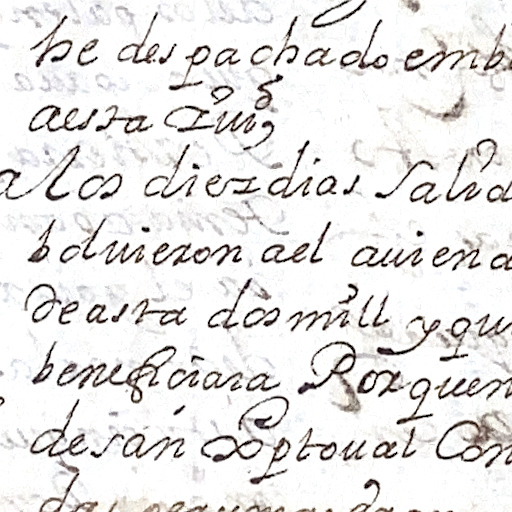 he despachado emb
aesta
a los diez dias salid
bolvieron ael aviend
de asta dos mill y qui
beneficiara Porquen
de san Xptoual Con